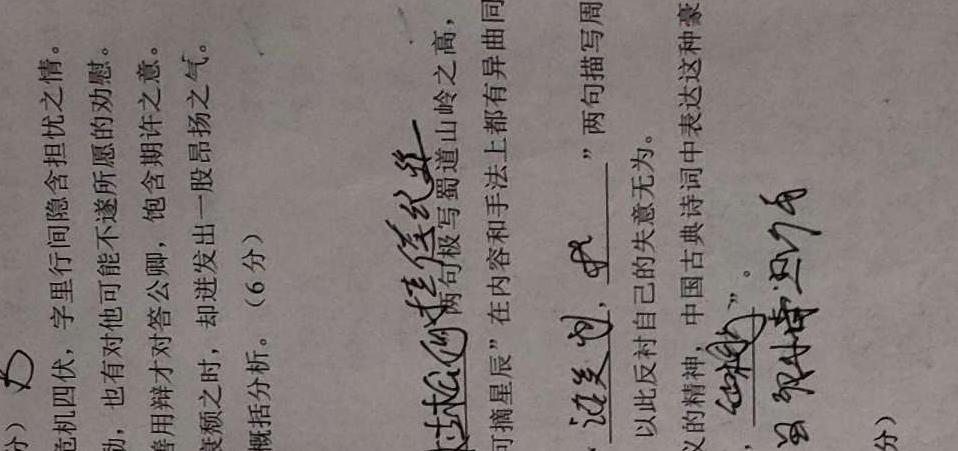 分）
危机四伏，字里行间隐含担忧之情。
，也有对他可能不遂所愿的劝慰。
善用辩才对答公卿，饱含期许之意。
衰颓之时，却迸发出一股昂扬之气。
概括分析。（6分）
两句极写蜀道山岭之高，
可摘星辰”在内容和手法上都有异曲同
谈笑间， ”两句描写周
以此反衬自己的失意无为。
义的精神，中国古典诗词中表达这种豪
， ”。
分）